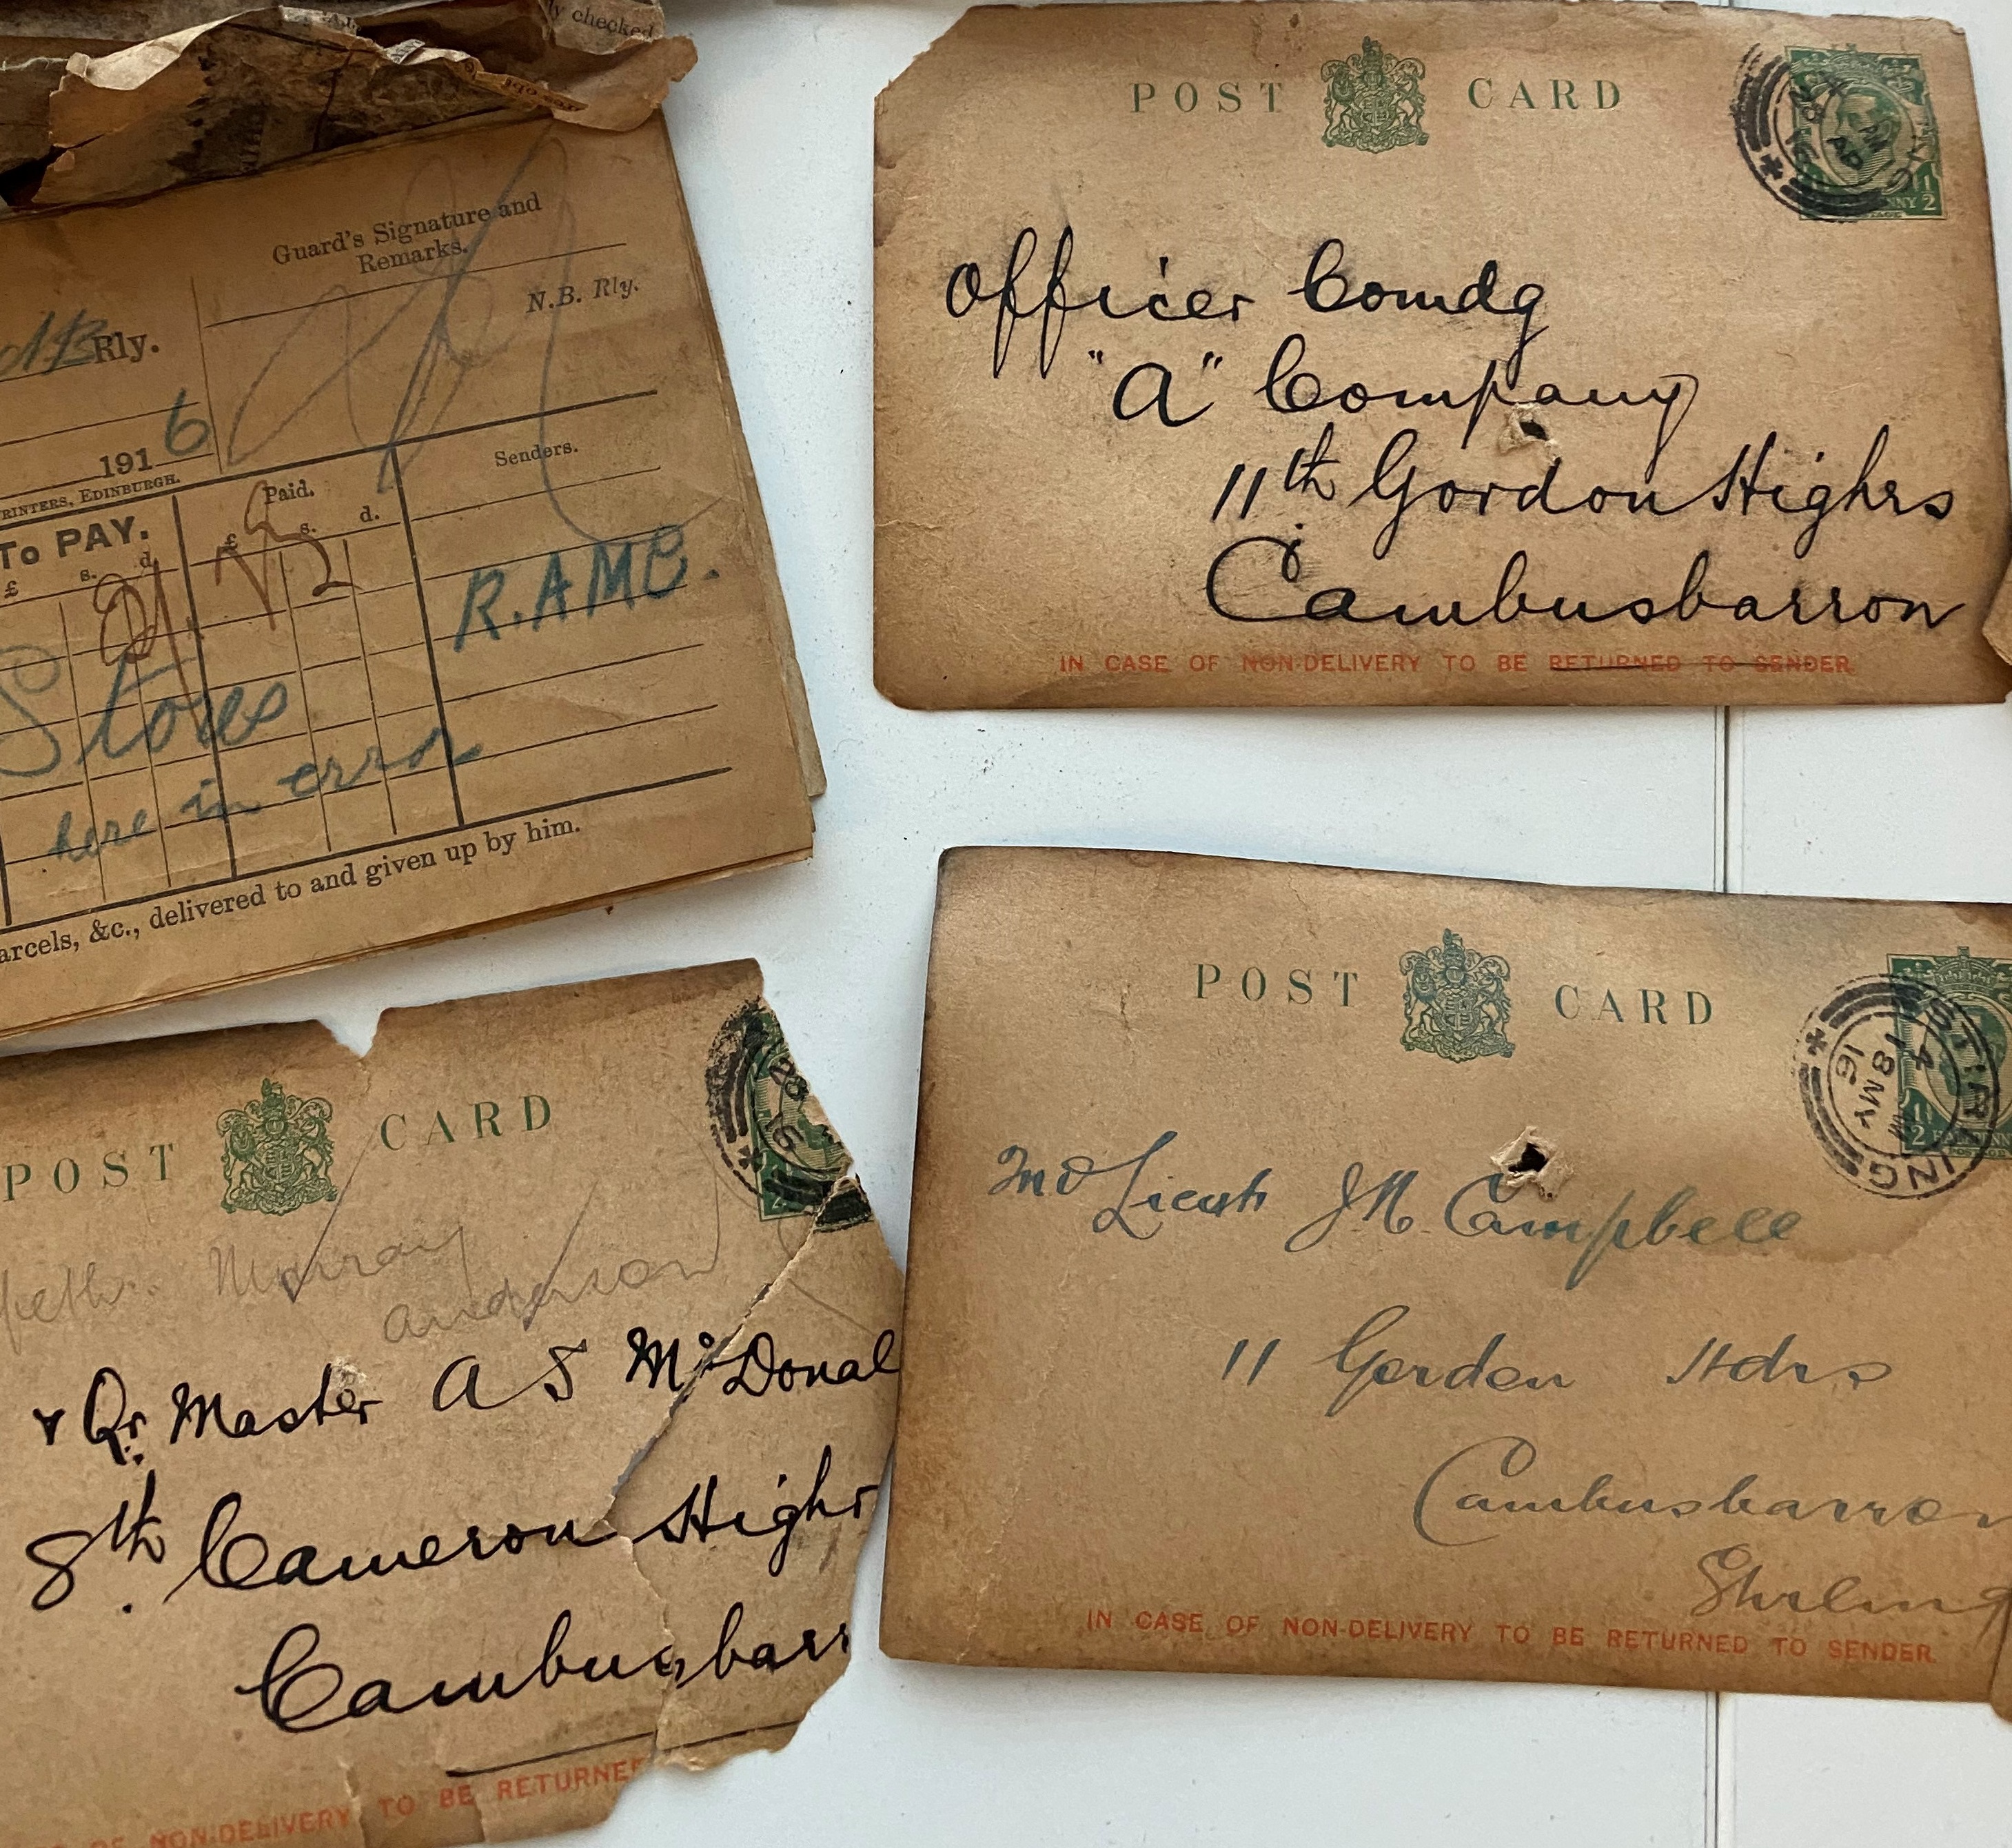 ly checked
Guard's Signature and
Remarks.
N.B. Rly.
Rly.
191 6
PRINTERS, EDINBURGH.
Paid.
£ s. d.
Senders.
To PAY.
£ s. d.
R.AMC.
Stores
here in error
arcels, &c., delivered to and given up by him.
POST CARD
Officer Comdg
"A" Company
11th Gordon Highrs
Cambusbarron
IN CASE OF NON-DELIVERY TO BE RETURNED TO SENDER
POST CARD
Murray
anderson
Qr. Master A S McDonal
8th Cameron Highr
Cambusbarr
OF NON-DELIVERY TO BE RETURNED
POST CARD
STIRLING
4
18 MY
16
Lieut J M Campbell
11 Gordon Hdrs
Cambusbarron
Stirling
IN CASE OF NON-DELIVERY TO BE RETURNED TO SENDER